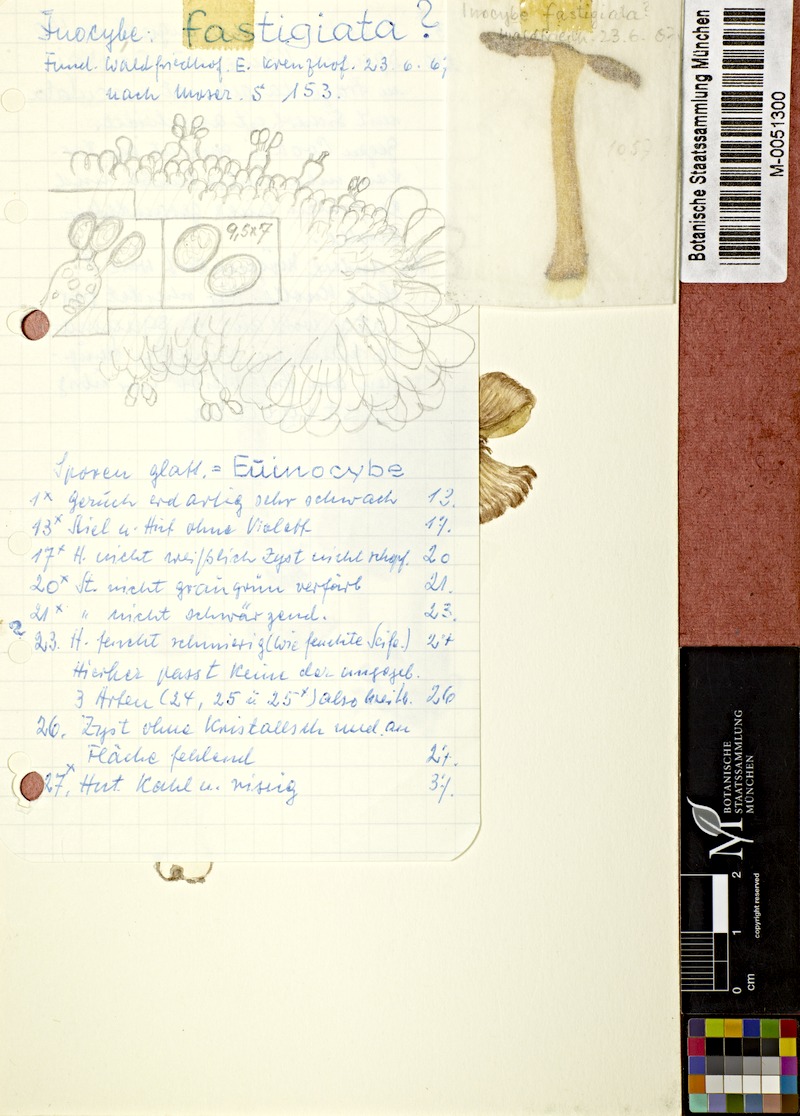 Inocybe: fastigiata?
Fund. Waldfriedhof. E. Kreuzhof. 23. 6. 67
nach Moser. S 153.
9,5x7
Sporen glatt. = Euinocybe
1x Geruch erdartig sehr schwach 13.
13x Stiel u. Hut ohne Violett 17.
17x H. nicht weißlich Zyst nicht schopf. 20
20x St. nicht graugrün verfärb 21.
21x " nicht schwärzend. 23.
?
23. H. feucht schmierig (wie feuchte Seife.) 24
Hierher passt keine der angegeb.
3 Arten (24, 25 u 25x) also 26
26. Zyst ohne Kristallsch und an
Fläche fehlend 27.
27x. Hut kahl u. rissig 37.
Inocybe fastigiata?
Waldfriedh. 23.6.67
Botanische Staatssammlung München
M-0051300
BOTANISCHE
STAATSSAMMLUNG
MÜNCHEN
0 1 2
cm
copyright reserved